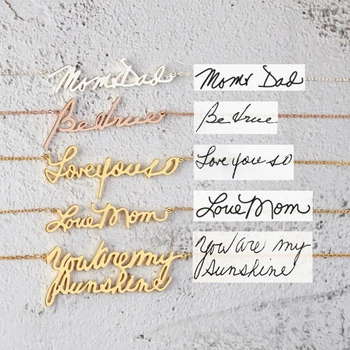 Mom & Dad Mom & Dad
Be true Be true
Love you so Love you so
Love Mom Love Mom
You are my You are my
Sunshine Sunshine